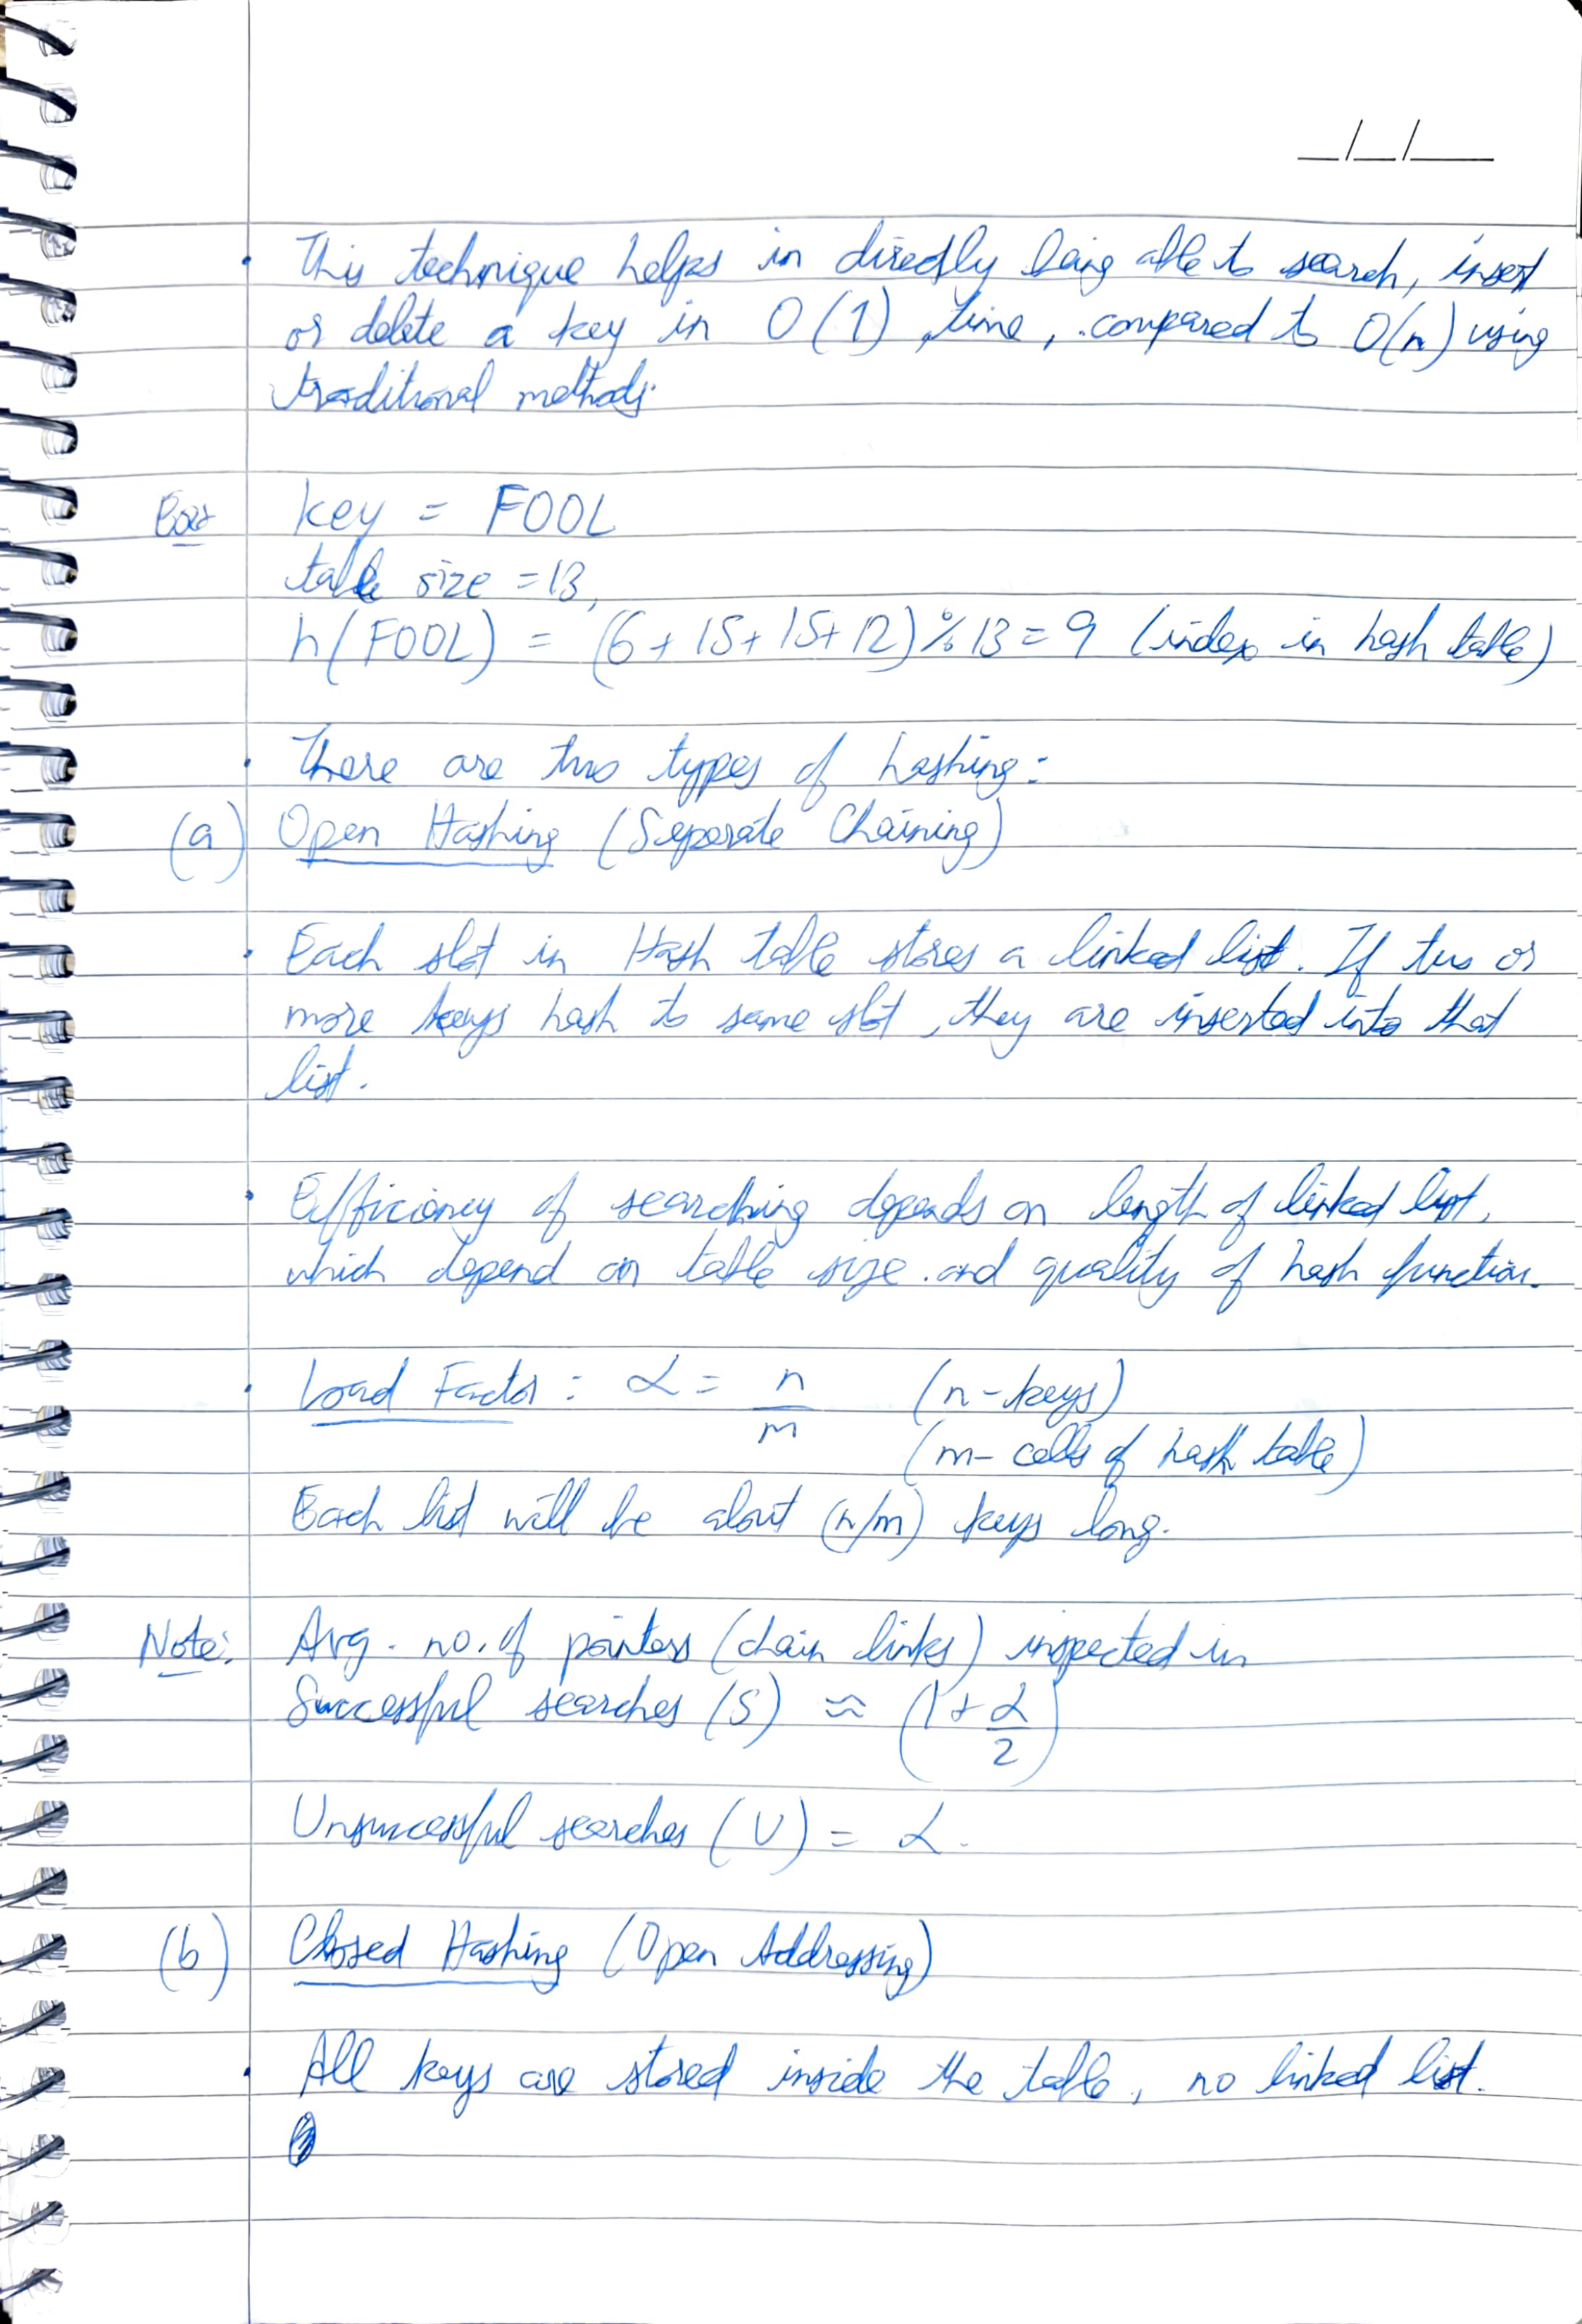 _/_/__
• This technique helps in directly being able to search, insert
or delete a key in O(1) time, compared to O(n) using
traditional methods.
Eg: key = FOOL
table size = 13,
h(FOOL) = (6 + 15 + 15 + 12) % 13 = 9 (index in hash table)
• There are two types of hashing:
(a) Open Hashing (Separate Chaining)
• Each slot in Hash table stores a linked list. If two or
more keys hash to same slot, they are inserted into that
list.
• Efficiency of searching depends on length of linked list,
which depend on table size and quality of hash function.
• Load Factor: α = n/m (n - keys)
(m - cells of hash table)
Each list will be about (n/m) keys long.
Note: Avg. no. of pointers (chain links) inspected in
Successful searches (S) ≈ (1 + α/2)
Unsuccessful searches (U) = α.
(b) Closed Hashing (Open Addressing)
• All keys are stored inside the table, no linked list.